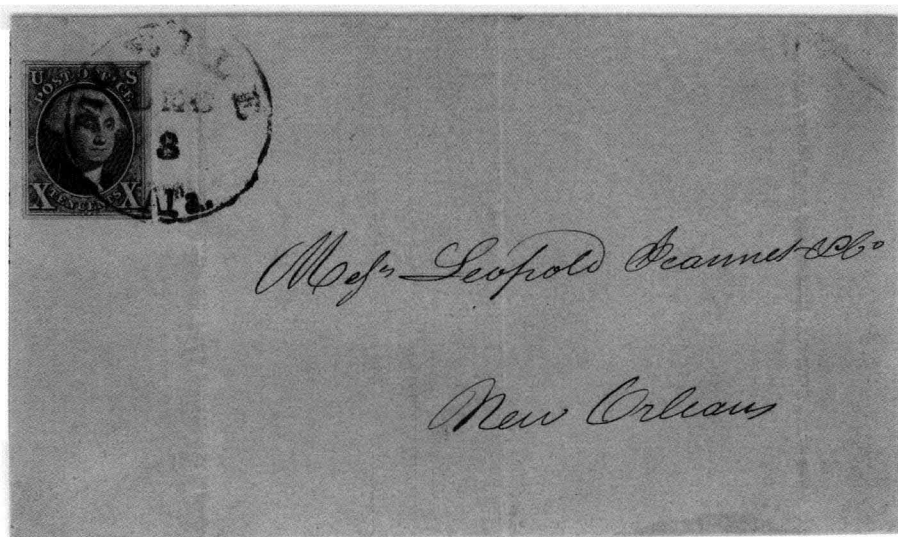 U S
POST OFFICE
X TEN CENTS X
DEC
8
Ala.
Mess Leopold Jeannet & Co
New Orleans